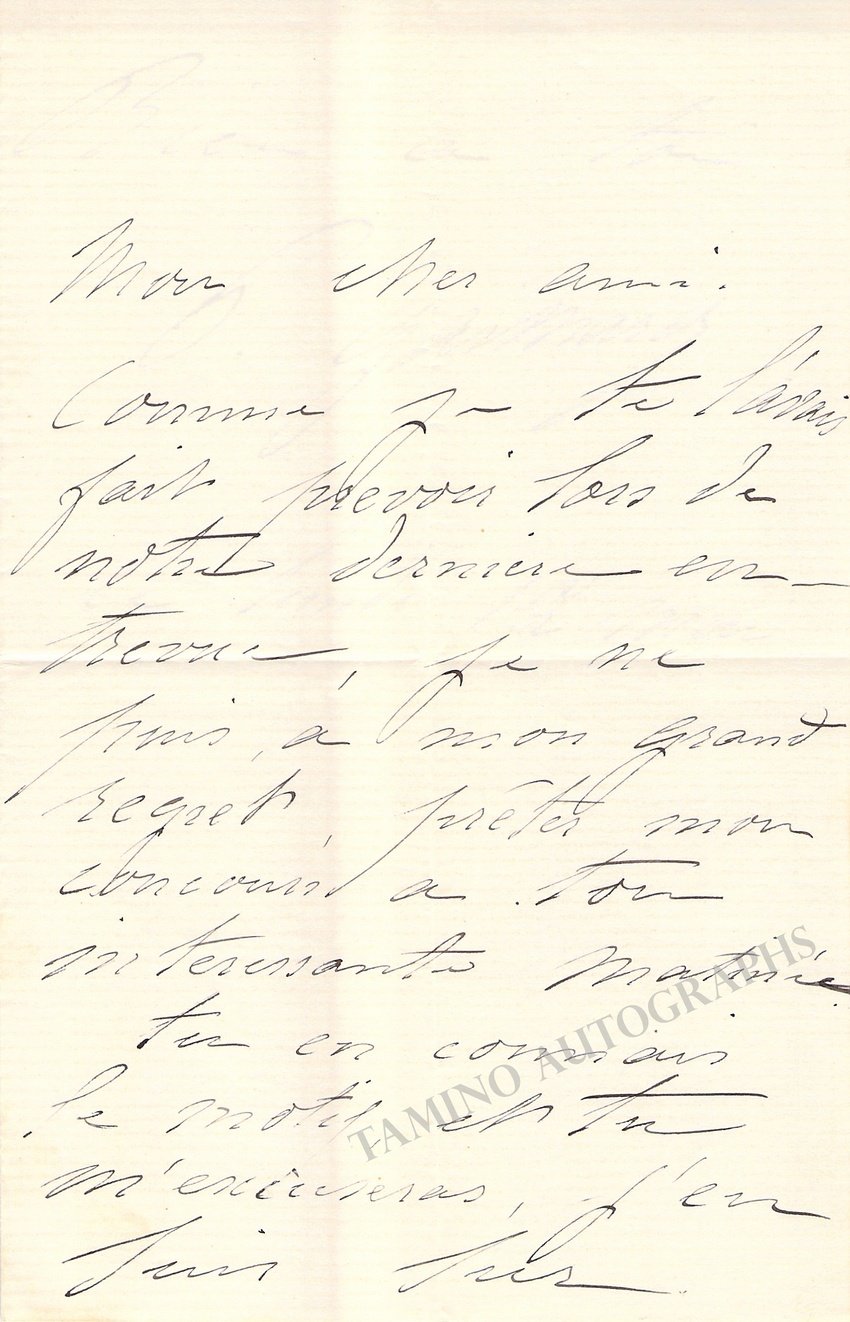 Mon cher ami.
Comme je te l'avais
fait prevoir lors de
notre derniere en-
trevue, je ne
puis, à mon grand
regret, prêter mon
concours a ton
interessante matinée.
tu en connais
le motif et tu
m'excuseras, j'en
suis sur.
TAMINO AUTOGRAPHS